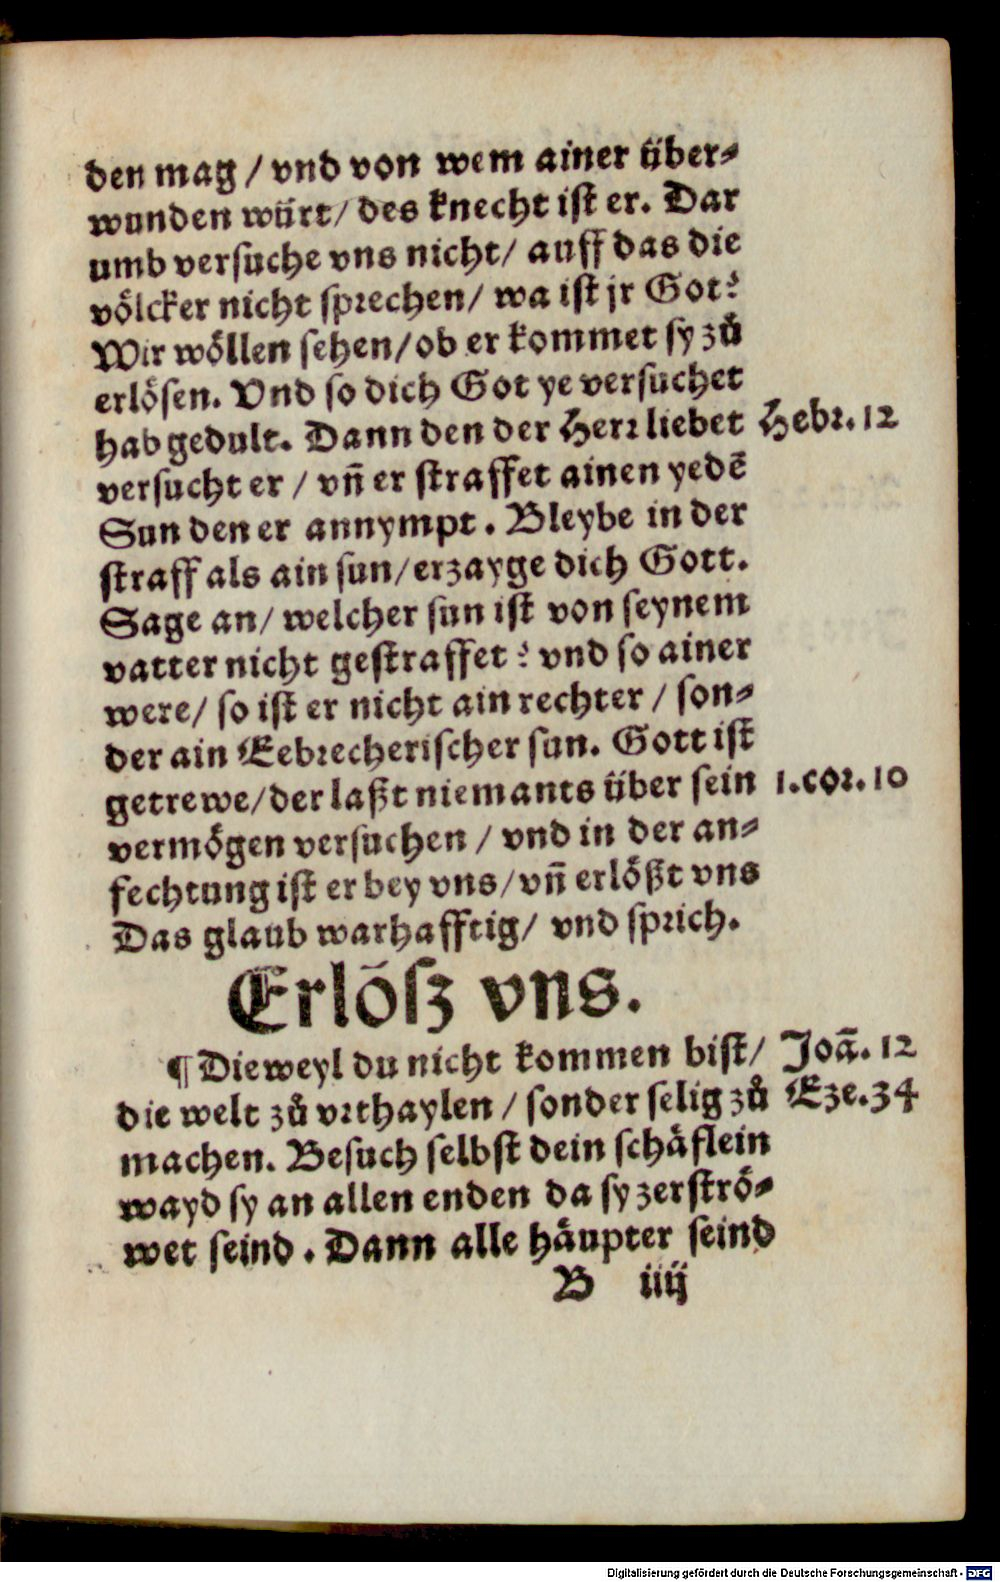 den mag / vnd von wem ainer über⸗
wunden würt / des knecht ist er. Dar
umb versuche vns nicht / auff das die
völcker nicht sprechen / wa ist jr Got?
Wir wöllen sehen / ob er kommet sy zů
erlösen. Vnd so dich Got ye versuchet
hab gedult. Dann den der Herr liebet Hebr. 12
versucht er / vñ er straffet ainen yedẽ
Sun den er annympt. Bleybe in der
straff als ain sun / erzayge dich Gott.
Sage an / welcher sun ist von seynem
vatter nicht gestraffet? vnd so ainer
were / so ist er nicht ain rechter / son⸗
der ain Eebrecherischer sun. Gott ist
getrewe / der laßt niemants über sein 1. cor. 10
vermögen versuchen / vnd in der an⸗
fechtung ist er bey vns / vñ erlößt vns
Das glaub warhafftig / vnd sprich.
Erlösz vns.
¶ Dieweyl du nicht kommen bist / Joã. 12
die welt zů vrthaylen / sonder selig zů Eze. 34
machen. Besuch selbst dein schäflein
wayd sy an allen enden da sy zerströ⸗
wet seind. Dann alle häupter seind
B iiij
Digitalisierung gefördert durch die Deutsche Forschungsgemeinschaft - DFG